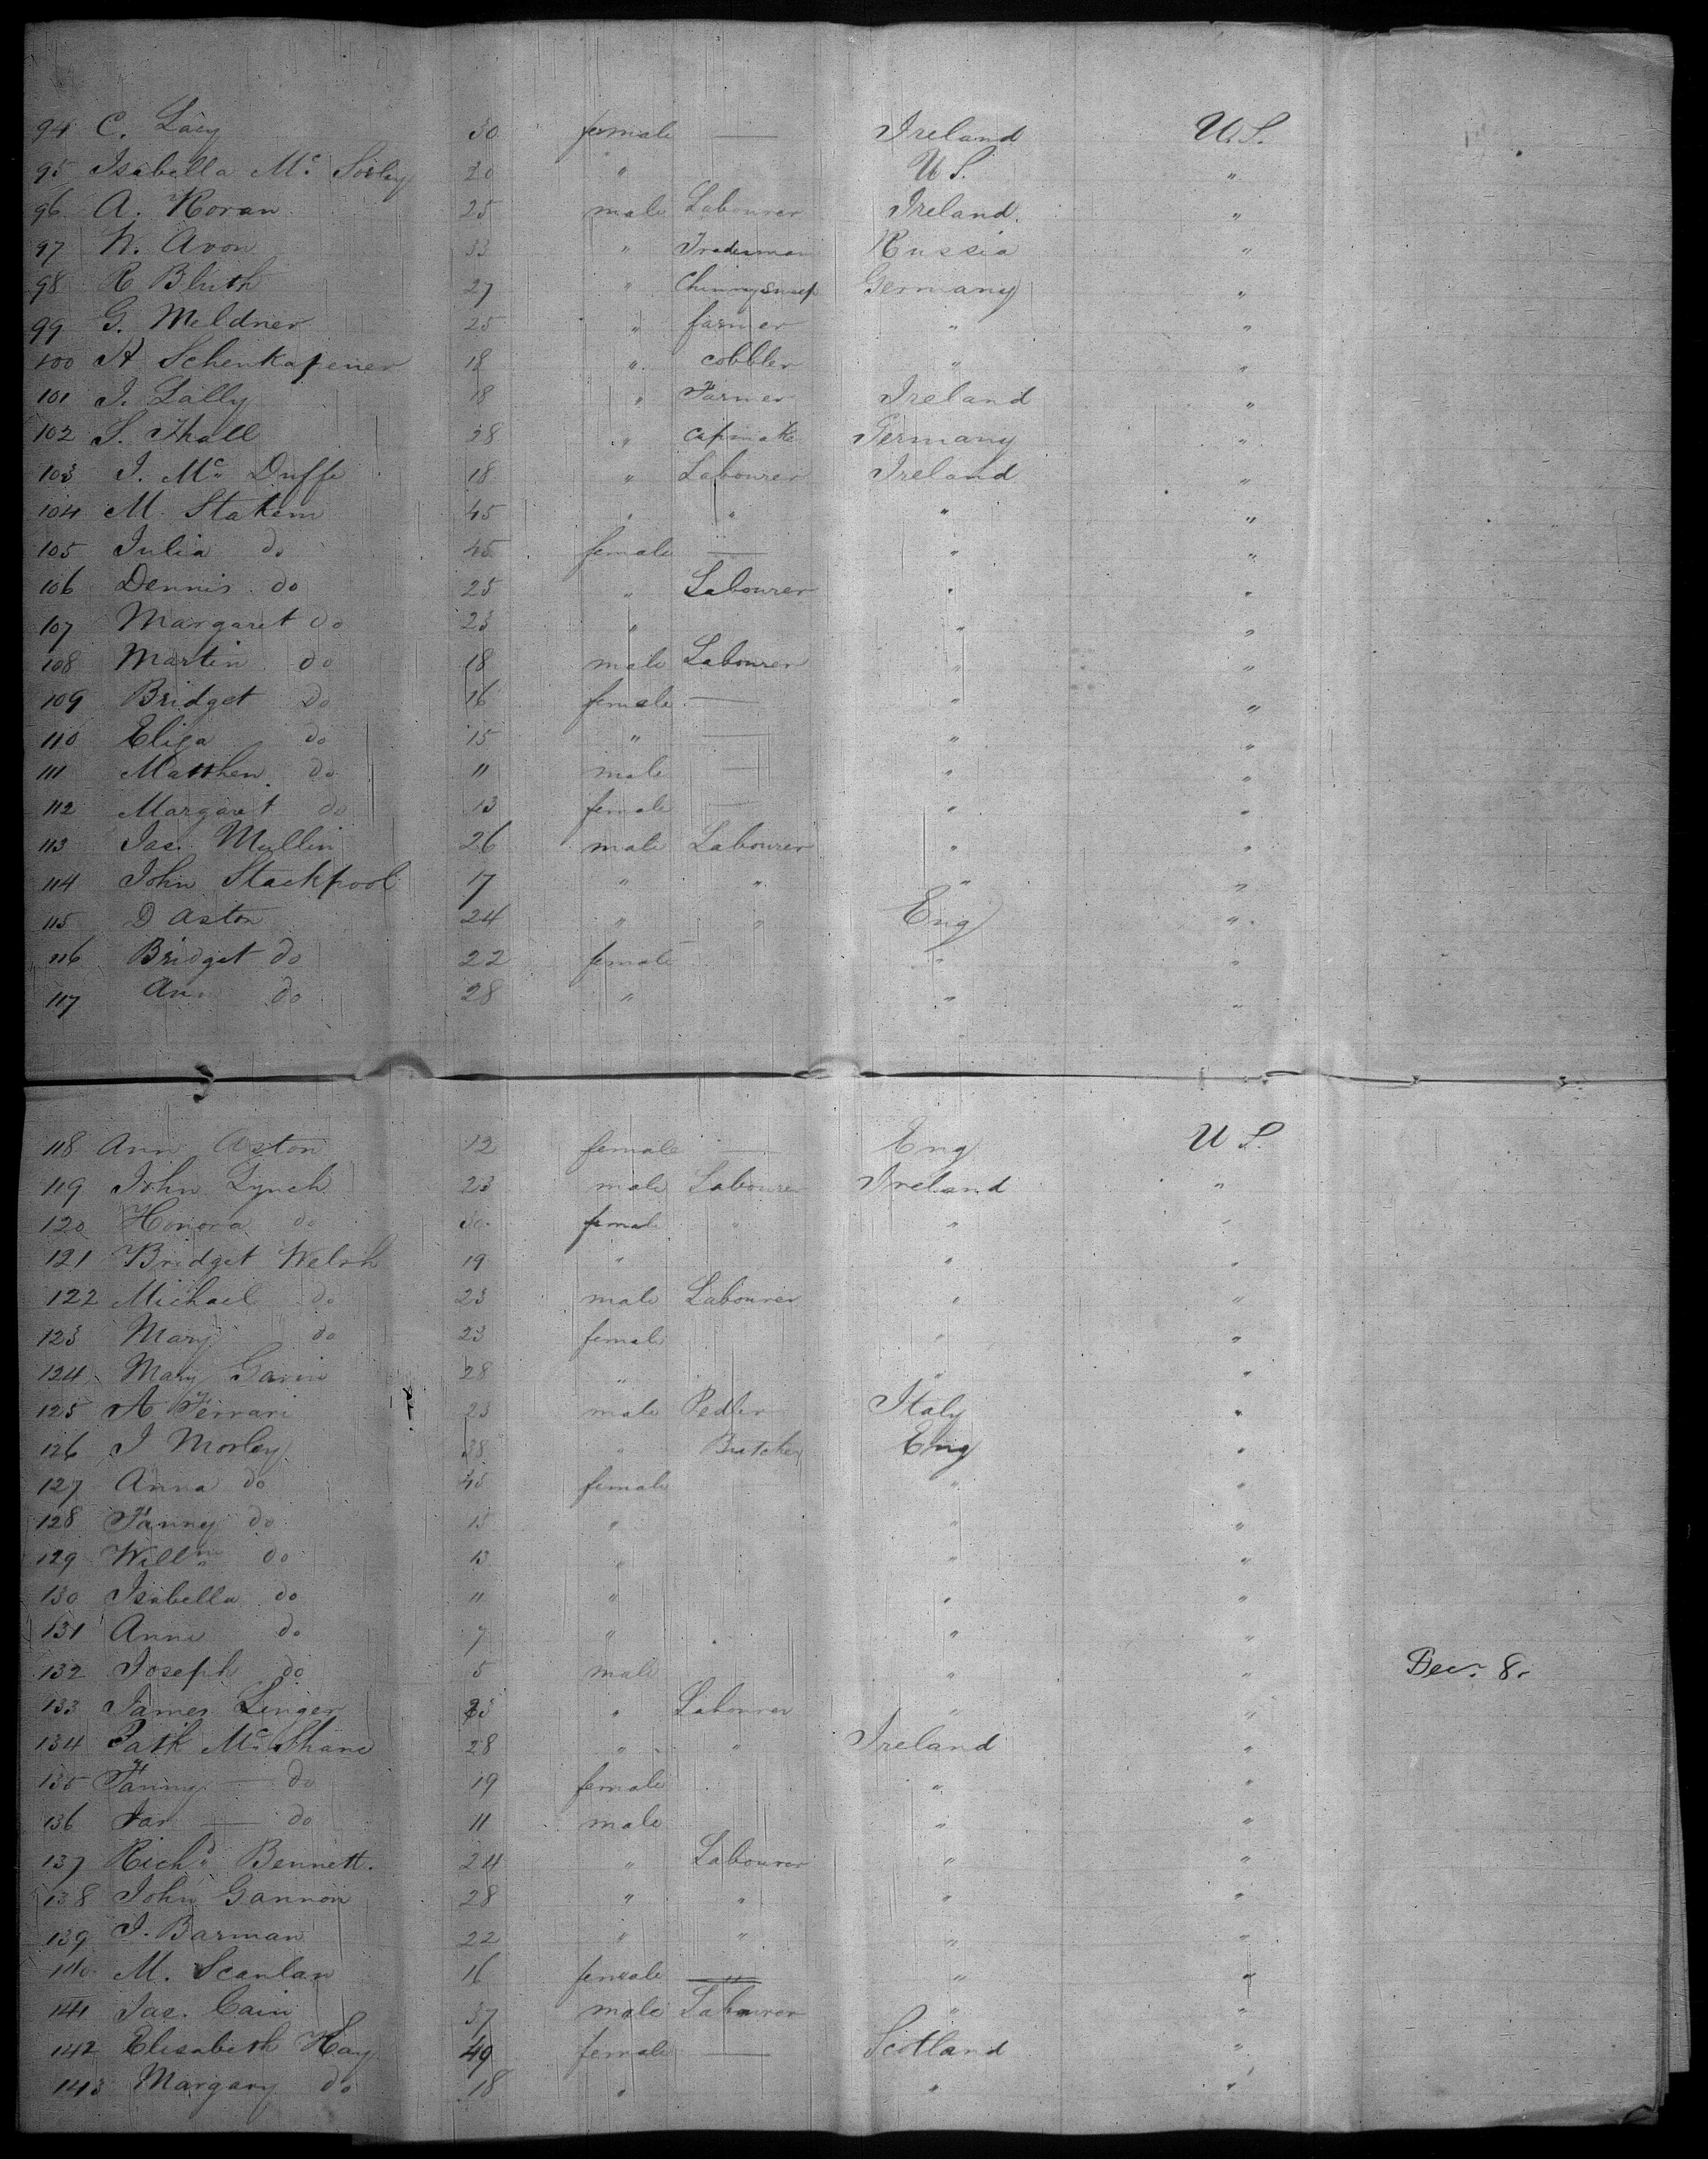 94 C. Lacy 30 female — Ireland U.S.
95 Isabella Mc Sorley 20 " U S. "
96 A. Horan 25 male Labourer Ireland. "
97 W. Avon 33 " Tradesman Russia "
98 R Bluth 27 " Chimnysweep Germany "
99 G. Meldner 25 " farmer " "
100 A Schenkapener 18 " cobbler " "
101 J. Lally 18 " Farmer Ireland "
102 S. Thall 28 " capmaker Germany "
103 J. Mc Duffe 18 " Labourer Ireland "
104 M. Stakem 45 " " " "
105 Julia do 45 female — " "
106 Dennis do 25 " Labourer " "
107 Margaret do 23 " " "
108 Martin do 18 male Labourer " "
109 Bridget do 16 female — " "
110 Eliza do 15 " — " "
111 Matthew do 11 male — " "
112 Margaret do 13 female — " "
113 Jas. Mullin 26 male Labourer " "
114 John Stackpool 17 " " " "
115 D Aston 24 " " Eng "
116 Bridget do 22 female " "
117 Ann do 28 " " "
118 Ann Aston 12 female — Eng U S.
119 John Lynch 23 male Labourer Ireland "
120 Honora do female " " "
121 Bridget Welsh 19 " " "
122 Michael do 23 male Labourer " "
123 Mary do 23 female " "
124 Mary Gavin 28 " " "
125 A Ferrari 23 male Pedler Italy "
126 J Morley 38 " Butcher Eng "
127 Anna do 45 female " "
128 Fanny do 15 " " "
129 Willm do 13 " " "
130 Isabella do 11 " " "
131 Anne do 7 " " "
132 Joseph do 5 male " " Dec. 8.
133 James Linger 23 " Labourer " "
134 Patk Mc Shane 28 " " Ireland "
135 Fanny — do 19 female " "
136 Jas — do 11 male " "
137 Richd Bennett. 24 " Labourer " "
138 John Gannon 28 " " " "
139 J. Barman 22 " " " "
140 M. Scanlan 16 female — " "
141 Jas. Cain 37 male Labourer " "
142 Elisabeth Hay 49 female — Scotland "
143 Margary do 18 " " "